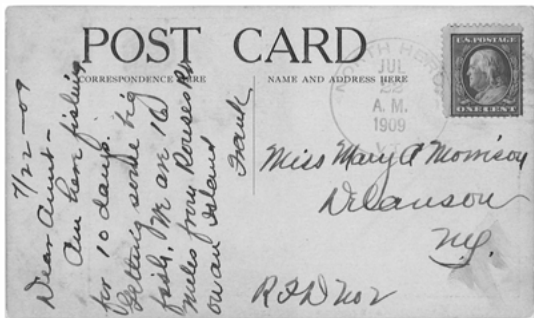 POST CARD
CORRESPONDENCE HERE
NAME AND ADDRESS HERE
NORTH HERO
JUL
22
A.M.
1909
VT.
U.S. POSTAGE
ONE CENT
7/22-09
Dear Aunt-
Am here fishing
for 10 days.
Getting some big
fish. We are 16
miles from Rouses Pt
on an Island
Frank
Miss Mary A Morrison
Delanson
N.Y.
R F D No 2